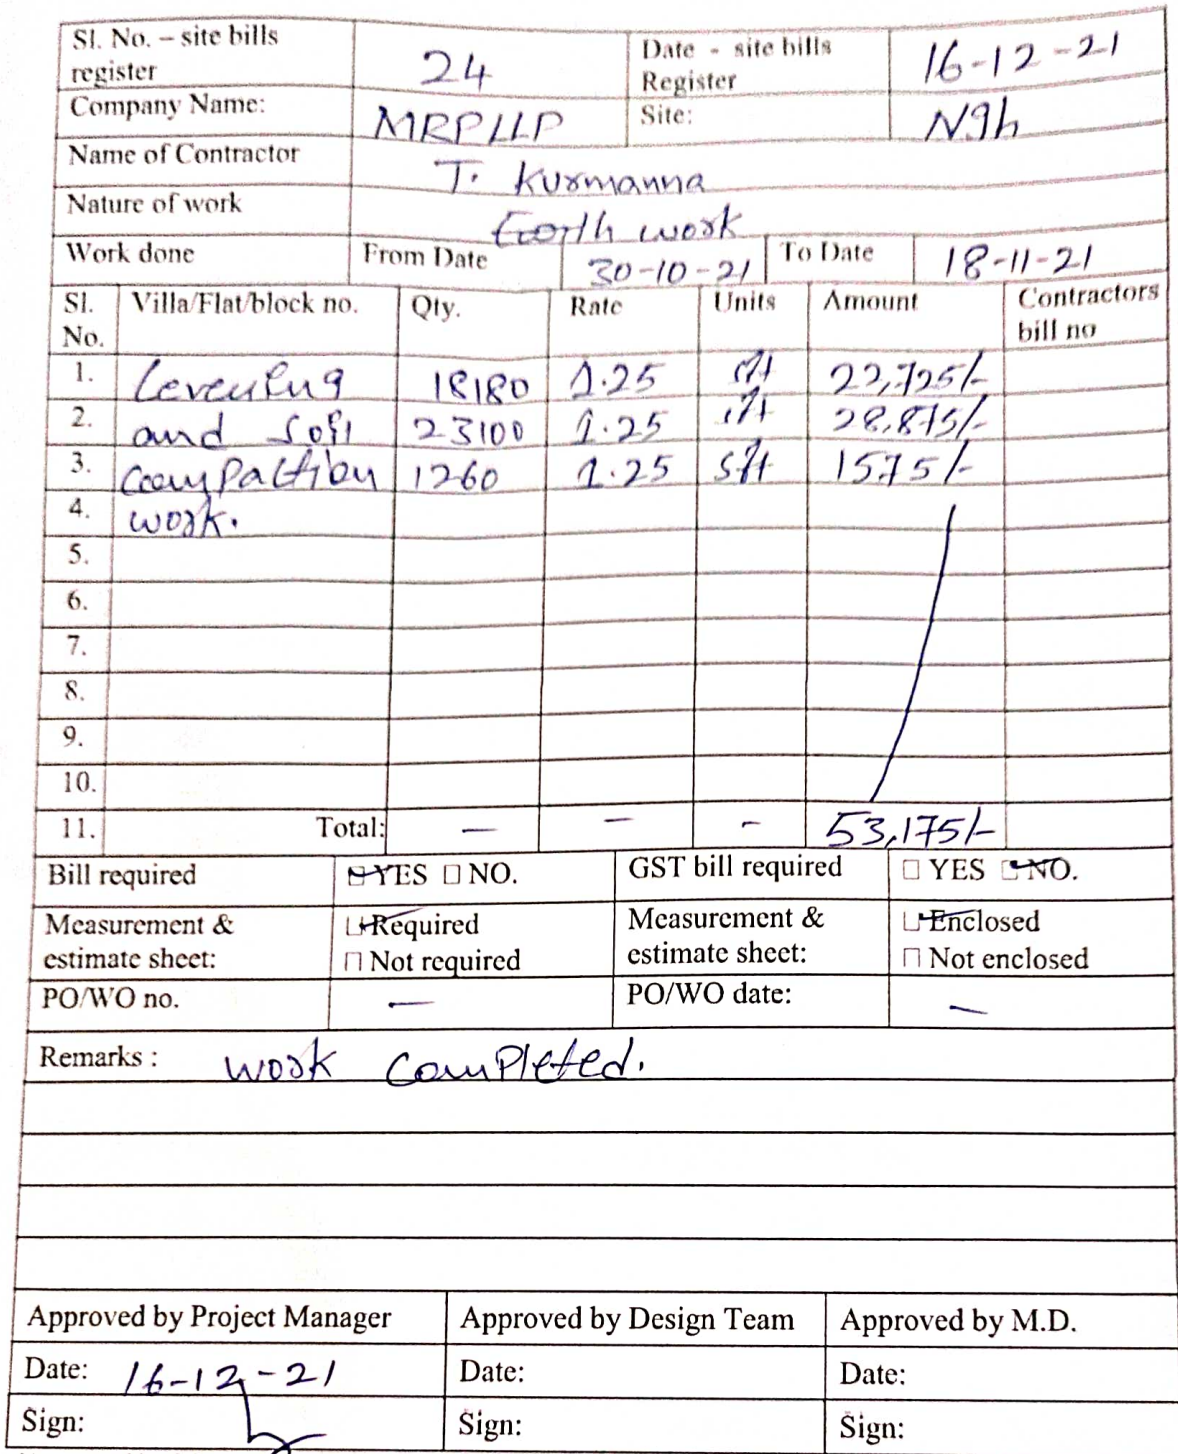 Sl. No. – site bills register 24 Date - site bills Register 16-12-21
Company Name: MRPLLP Site: Ngh
Name of Contractor T. Kurmanna
Nature of work Earth work
Work done From Date 30-10-21 To Date 18-11-21
Sl. No. Villa/Flat/block no. Qty. Rate Units Amount Contractors bill no
1. Leveling 18180 1.25 sft 22,725/-
2. and Soil 23100 1.25 sft 28,875/-
3. compaction 1260 1.25 sft 1575/-
4. work.
5.
6.
7.
8.
9.
10.
11. Total: — — - 53,175/-
Bill required YES NO. GST bill required YES NO.
Measurement & estimate sheet: Required Not required Measurement & estimate sheet: Enclosed Not enclosed
PO/WO no. — PO/WO date: —
Remarks : work completed.
Approved by Project Manager Approved by Design Team Approved by M.D.
Date: 16-12-21 Date: Date:
Sign: Sign: Sign: